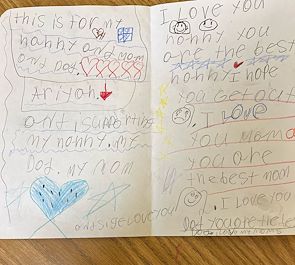 this is for my
nanny and mom
and Dad.
Ariyah
and is supporting
my nanny. my
Dad. my mom
I Love you
nanny you
are the best
nanny I hope
you Get out
I Love
you mom
you are
the best mom
I Love you
Dad you are the best